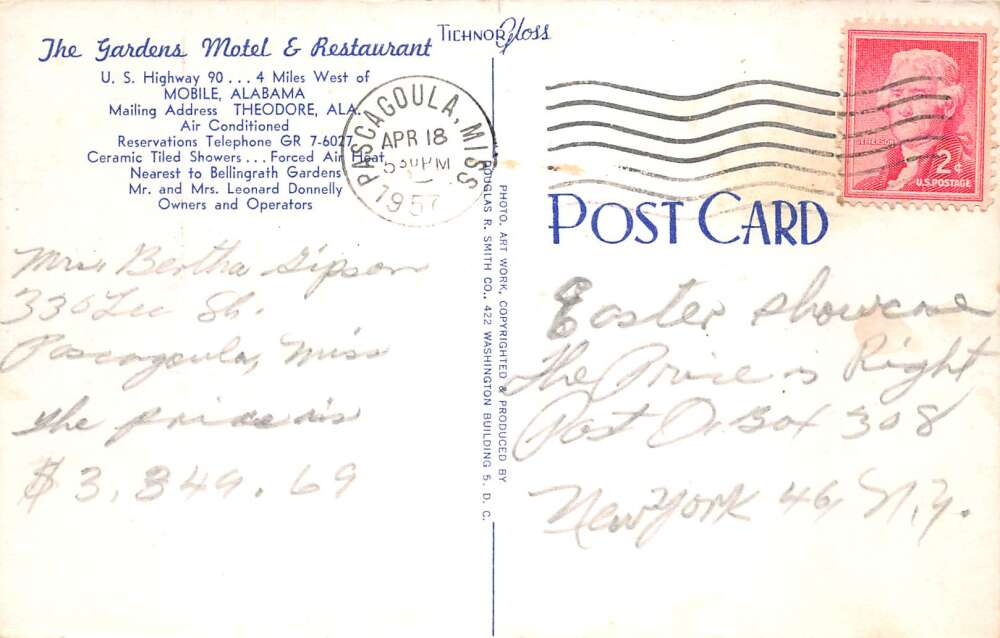 The Gardens Motel & Restaurant
U. S. Highway 90 . . . 4 Miles West of
MOBILE, ALABAMA
Mailing Address THEODORE, ALA.
Air Conditioned
Reservations Telephone GR 7-6027
Ceramic Tiled Showers . . . Forced Air Heat
Nearest to Bellingrath Gardens
Mr. and Mrs. Leonard Donnelly
Owners and Operators
TICHNOR Gloss
PASCAGOULA, MISS
APR 18
530 PM
1957
JEFFERSON
2¢
U.S. POSTAGE
POST CARD
PHOTO, ART WORK, COPYRIGHTED & PRODUCED BY
DOUGLAS R. SMITH CO., 422 WASHINGTON BUILDING 5, D. C.
Mrs Bertha Gipson
330 Lee St.
Pascagoula, Miss
the price is
$3,849.69
Easter showcase
The Price is Right
Post O. Box 308
New York 46, N.Y.